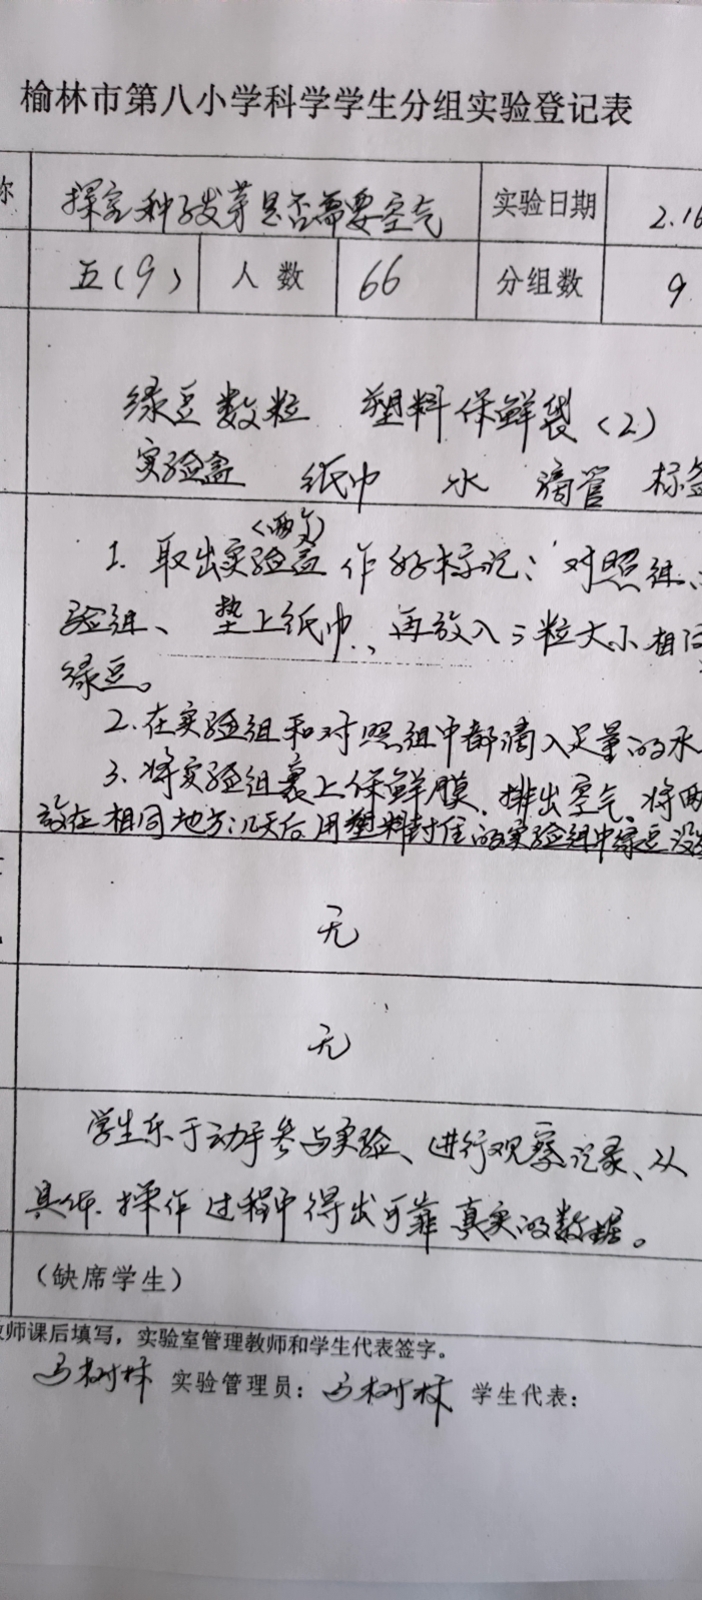 榆林市第八小学科学学生分组实验登记表
称 探究种子发芽是否需要空气 实验日期 2.16
五(9) 人数 66 分组数 9
绿豆数粒 塑料保鲜袋(2)
实验盒 纸巾 水 滴管 标签
(两个)
1. 取出实验盒 作好标记:对照组、
验组、垫上纸巾,再放入三粒大小相同
绿豆。
2.在实验组和对照组中都滴入足量的水
3.将实验组裹上保鲜膜、排出空气、将两
放在相同地方;几天后用塑料封住的实验组中绿豆没
无
无
学生乐于动手参与实验、进行观察记录、从
具体操作过程中得出可靠真实的数据。
(缺席学生)
教师课后填写,实验室管理教师和学生代表签字。
马树林 实验管理员:马树林 学生代表: